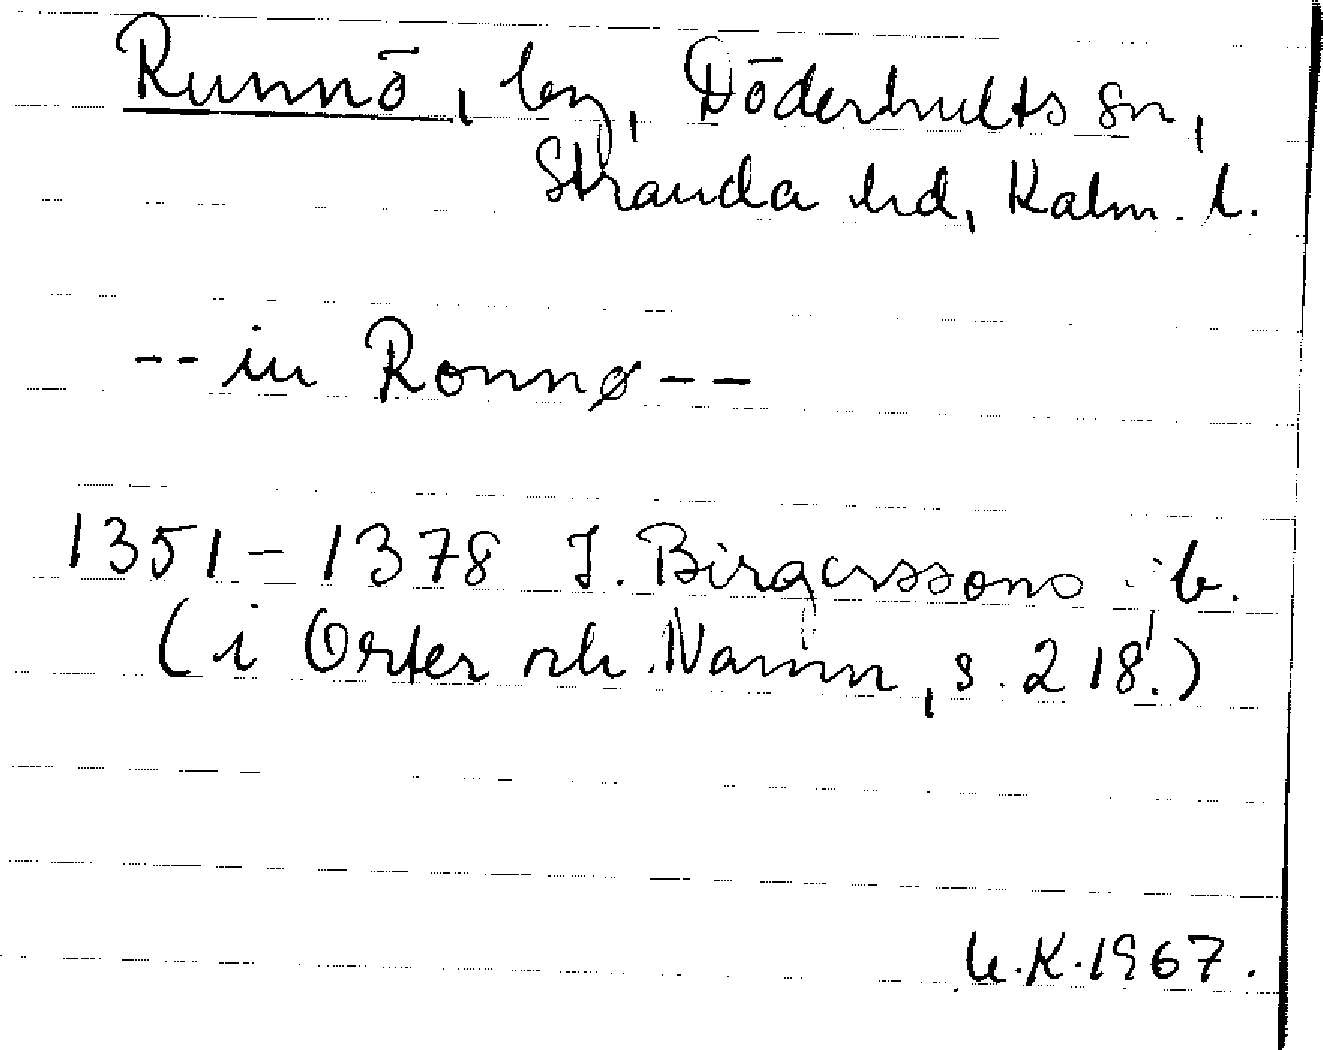 Runnö, by, Döderhults sn,
Stranda hd, Kalm. l.
-- in Ronnø --
1351-1378 J. Birgerssons b.
(i Orter och Namn, s. 218.)
K. 1967.